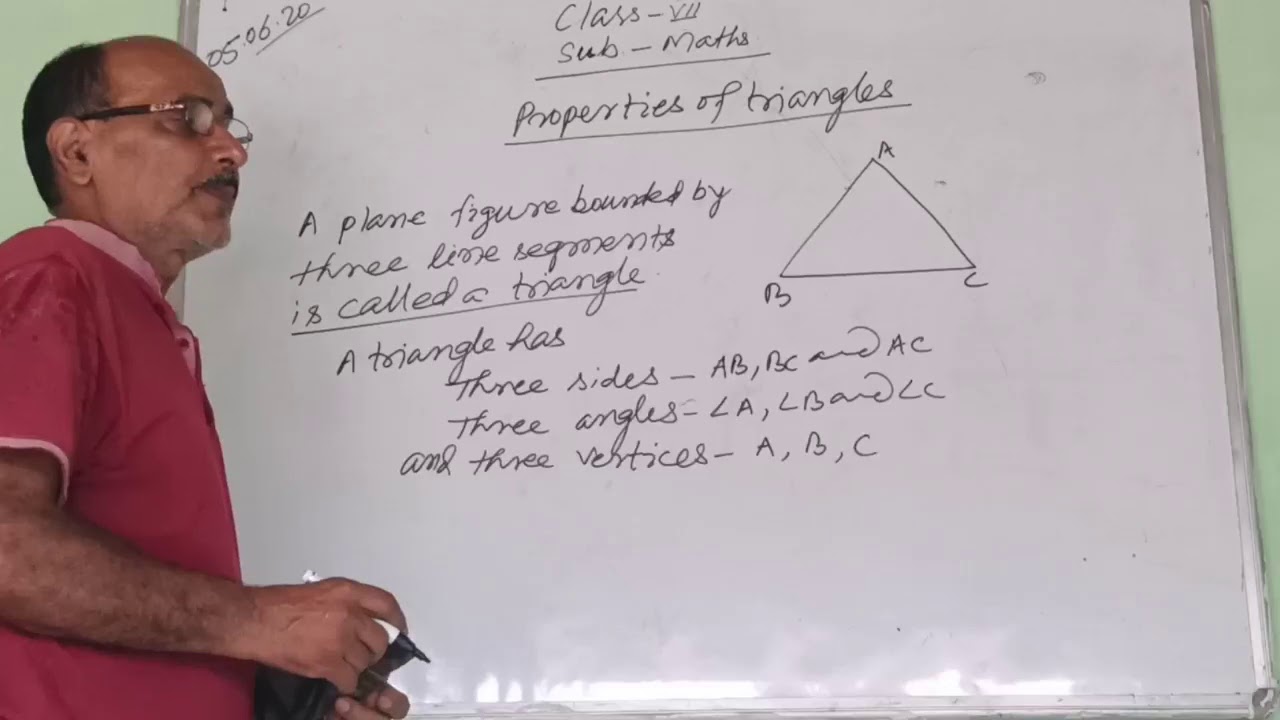 05.06.20
Class-VII
Sub - Maths
Properties of triangles
A plane figure bounded by
three line segments
is called a triangle.
A
B
C
A triangle has
three sides - AB, BC and AC
three angles - ∠A, ∠B and ∠C
and three vertices - A, B, C